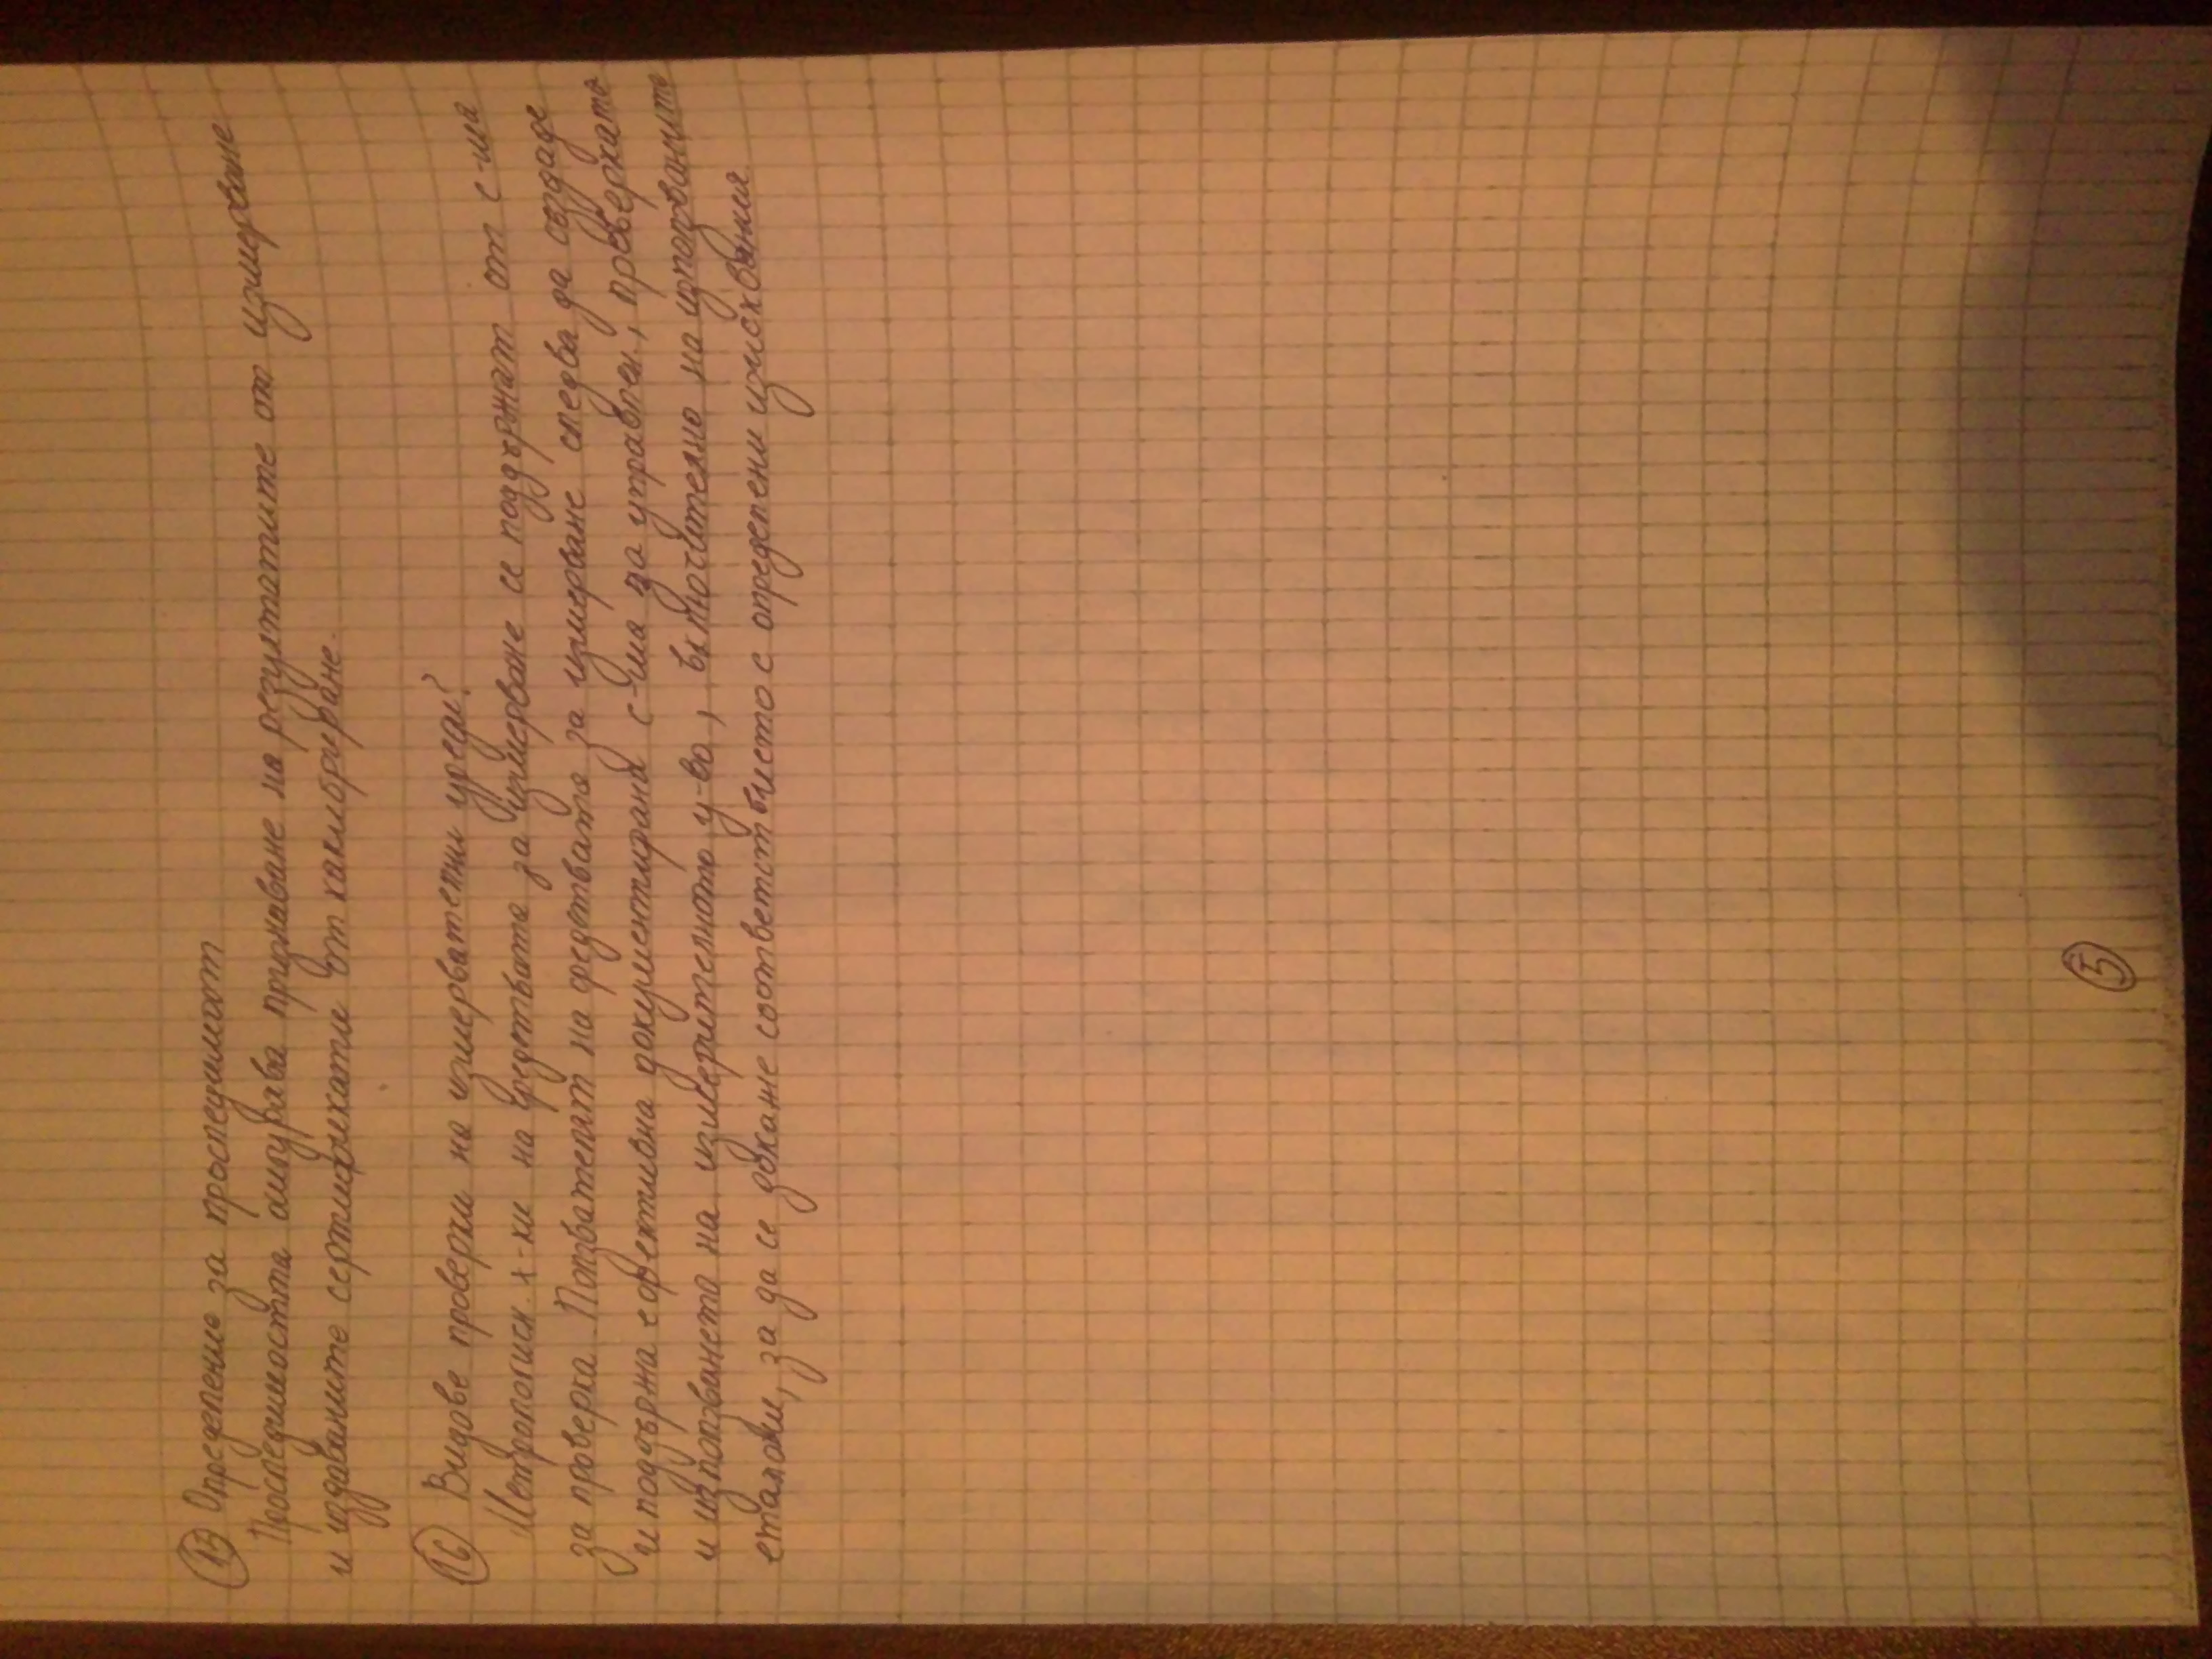 15 Определение за проследимост
Проследимостта осигурява признаване на резултатите от измерване
и издаваните сертификати от калибриране.
16 Видове проверки на измервателни уреди?
Метрологисн. х-ки на средствата за измерване се поддържат от с-ма
за проверка. Ползвателят на средствата за измерване следва да създаде
и поддържа ефективна документирана с-ма за управлен., проверката
и използването на измерителното у-во, включително на използваните
еталони, за да се докаже соответствието с определени изисквания
5